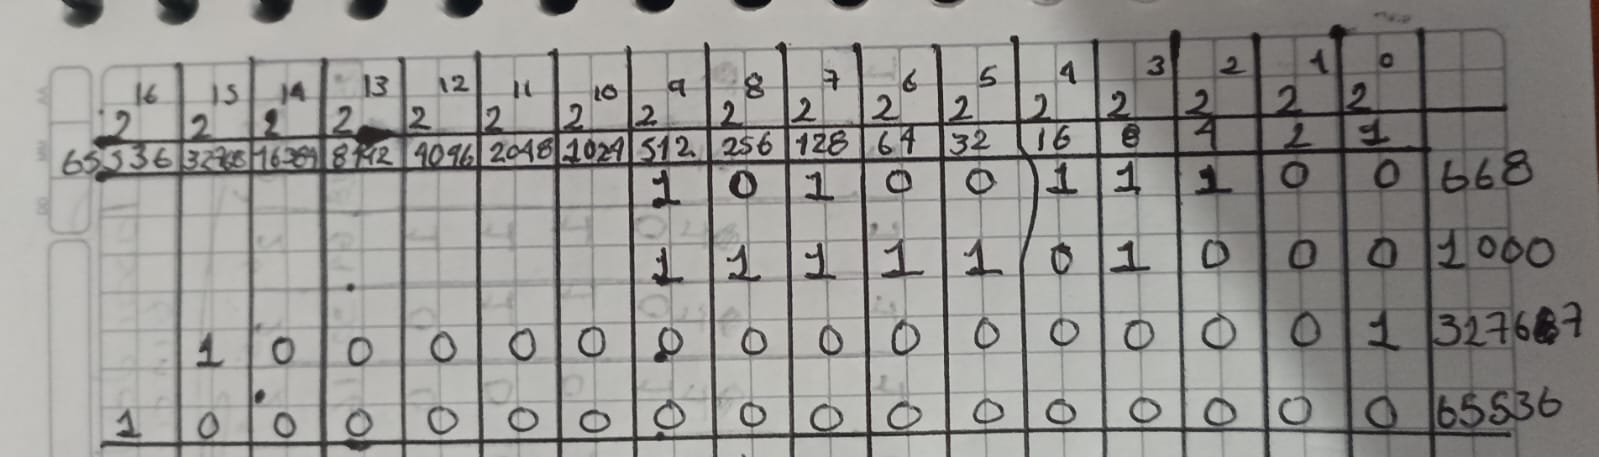 2^16 2^15 2^14 2^13 2^12 2^11 2^10 2^9 2^8 2^7 2^6 2^5 2^4 2^3 2^2 2^1 2^0
65536 32768 16384 8192 4096 2048 1024 512 256 128 64 32 16 8 4 2 1
1 0 1 0 0 1 1 1 0 0 668
1 1 1 1 1 0 1 0 0 0 1000
1 0 0 0 0 0 0 0 0 0 0 0 0 0 0 1 32767
1 0 0 0 0 0 0 0 0 0 0 0 0 0 0 0 0 65536